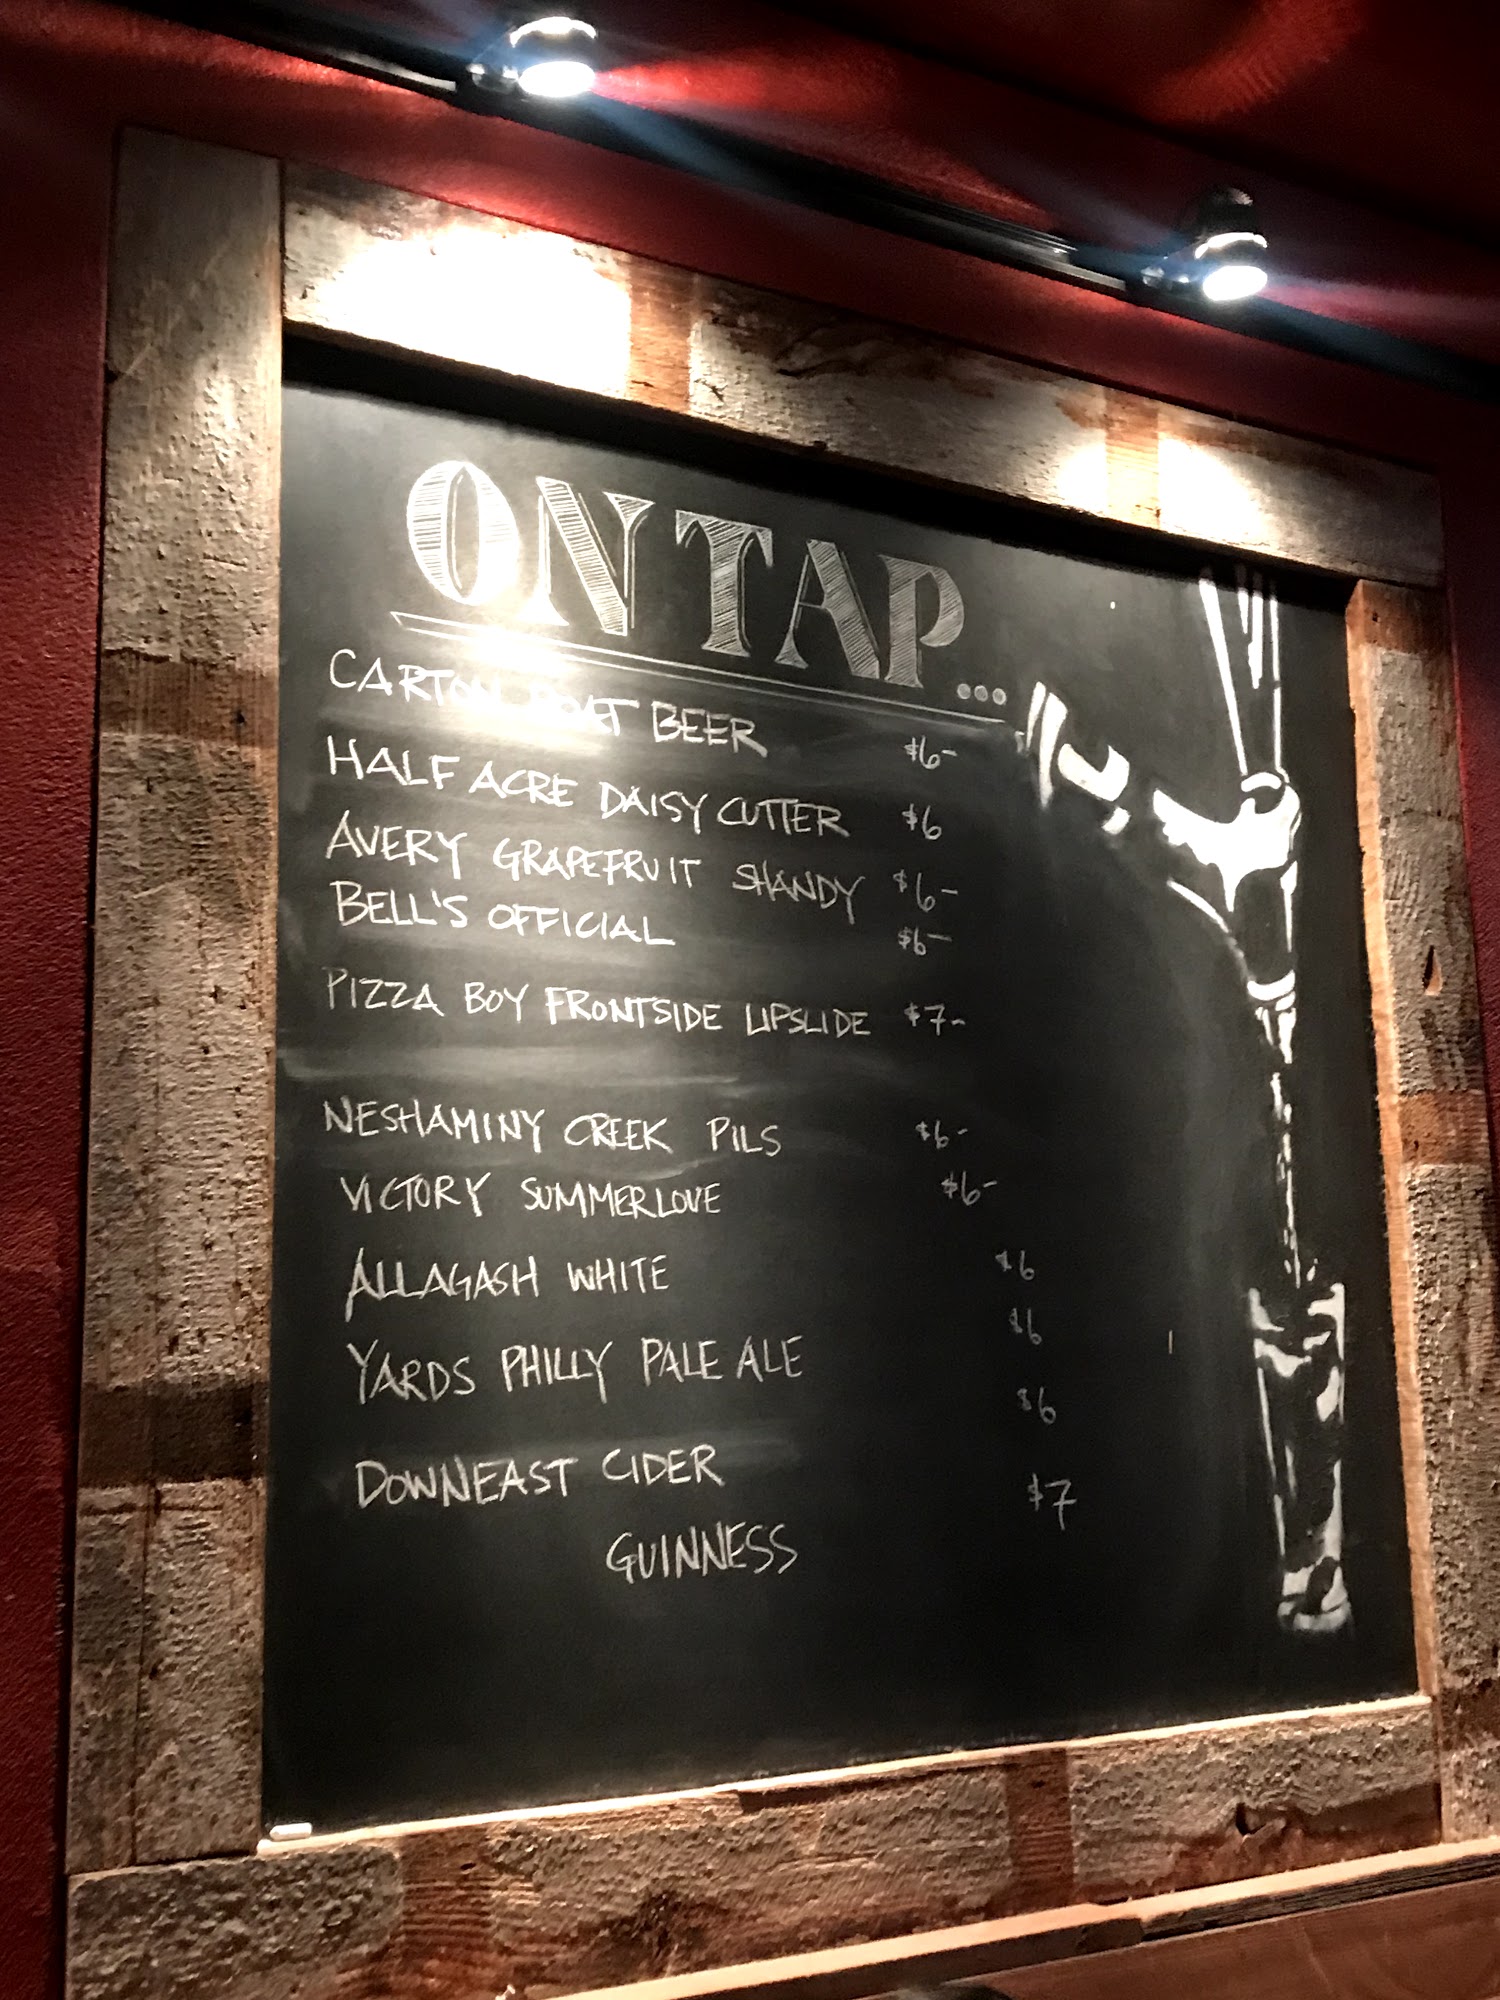 ON TAP...
CARTON BOAT BEER $6-
HALF ACRE DAISY CUTTER $6
AVERY GRAPEFRUIT SHANDY $6-
BELL'S OFFICIAL $6-
PIZZA BOY FRONTSIDE LIPSLIDE $7-
NESHAMINY CREEK PILS $6-
VICTORY SUMMERLOVE $6-
ALLAGASH WHITE $6
YARDS PHILLY PALE ALE $6
DOWNEAST CIDER $6
GUINNESS $7